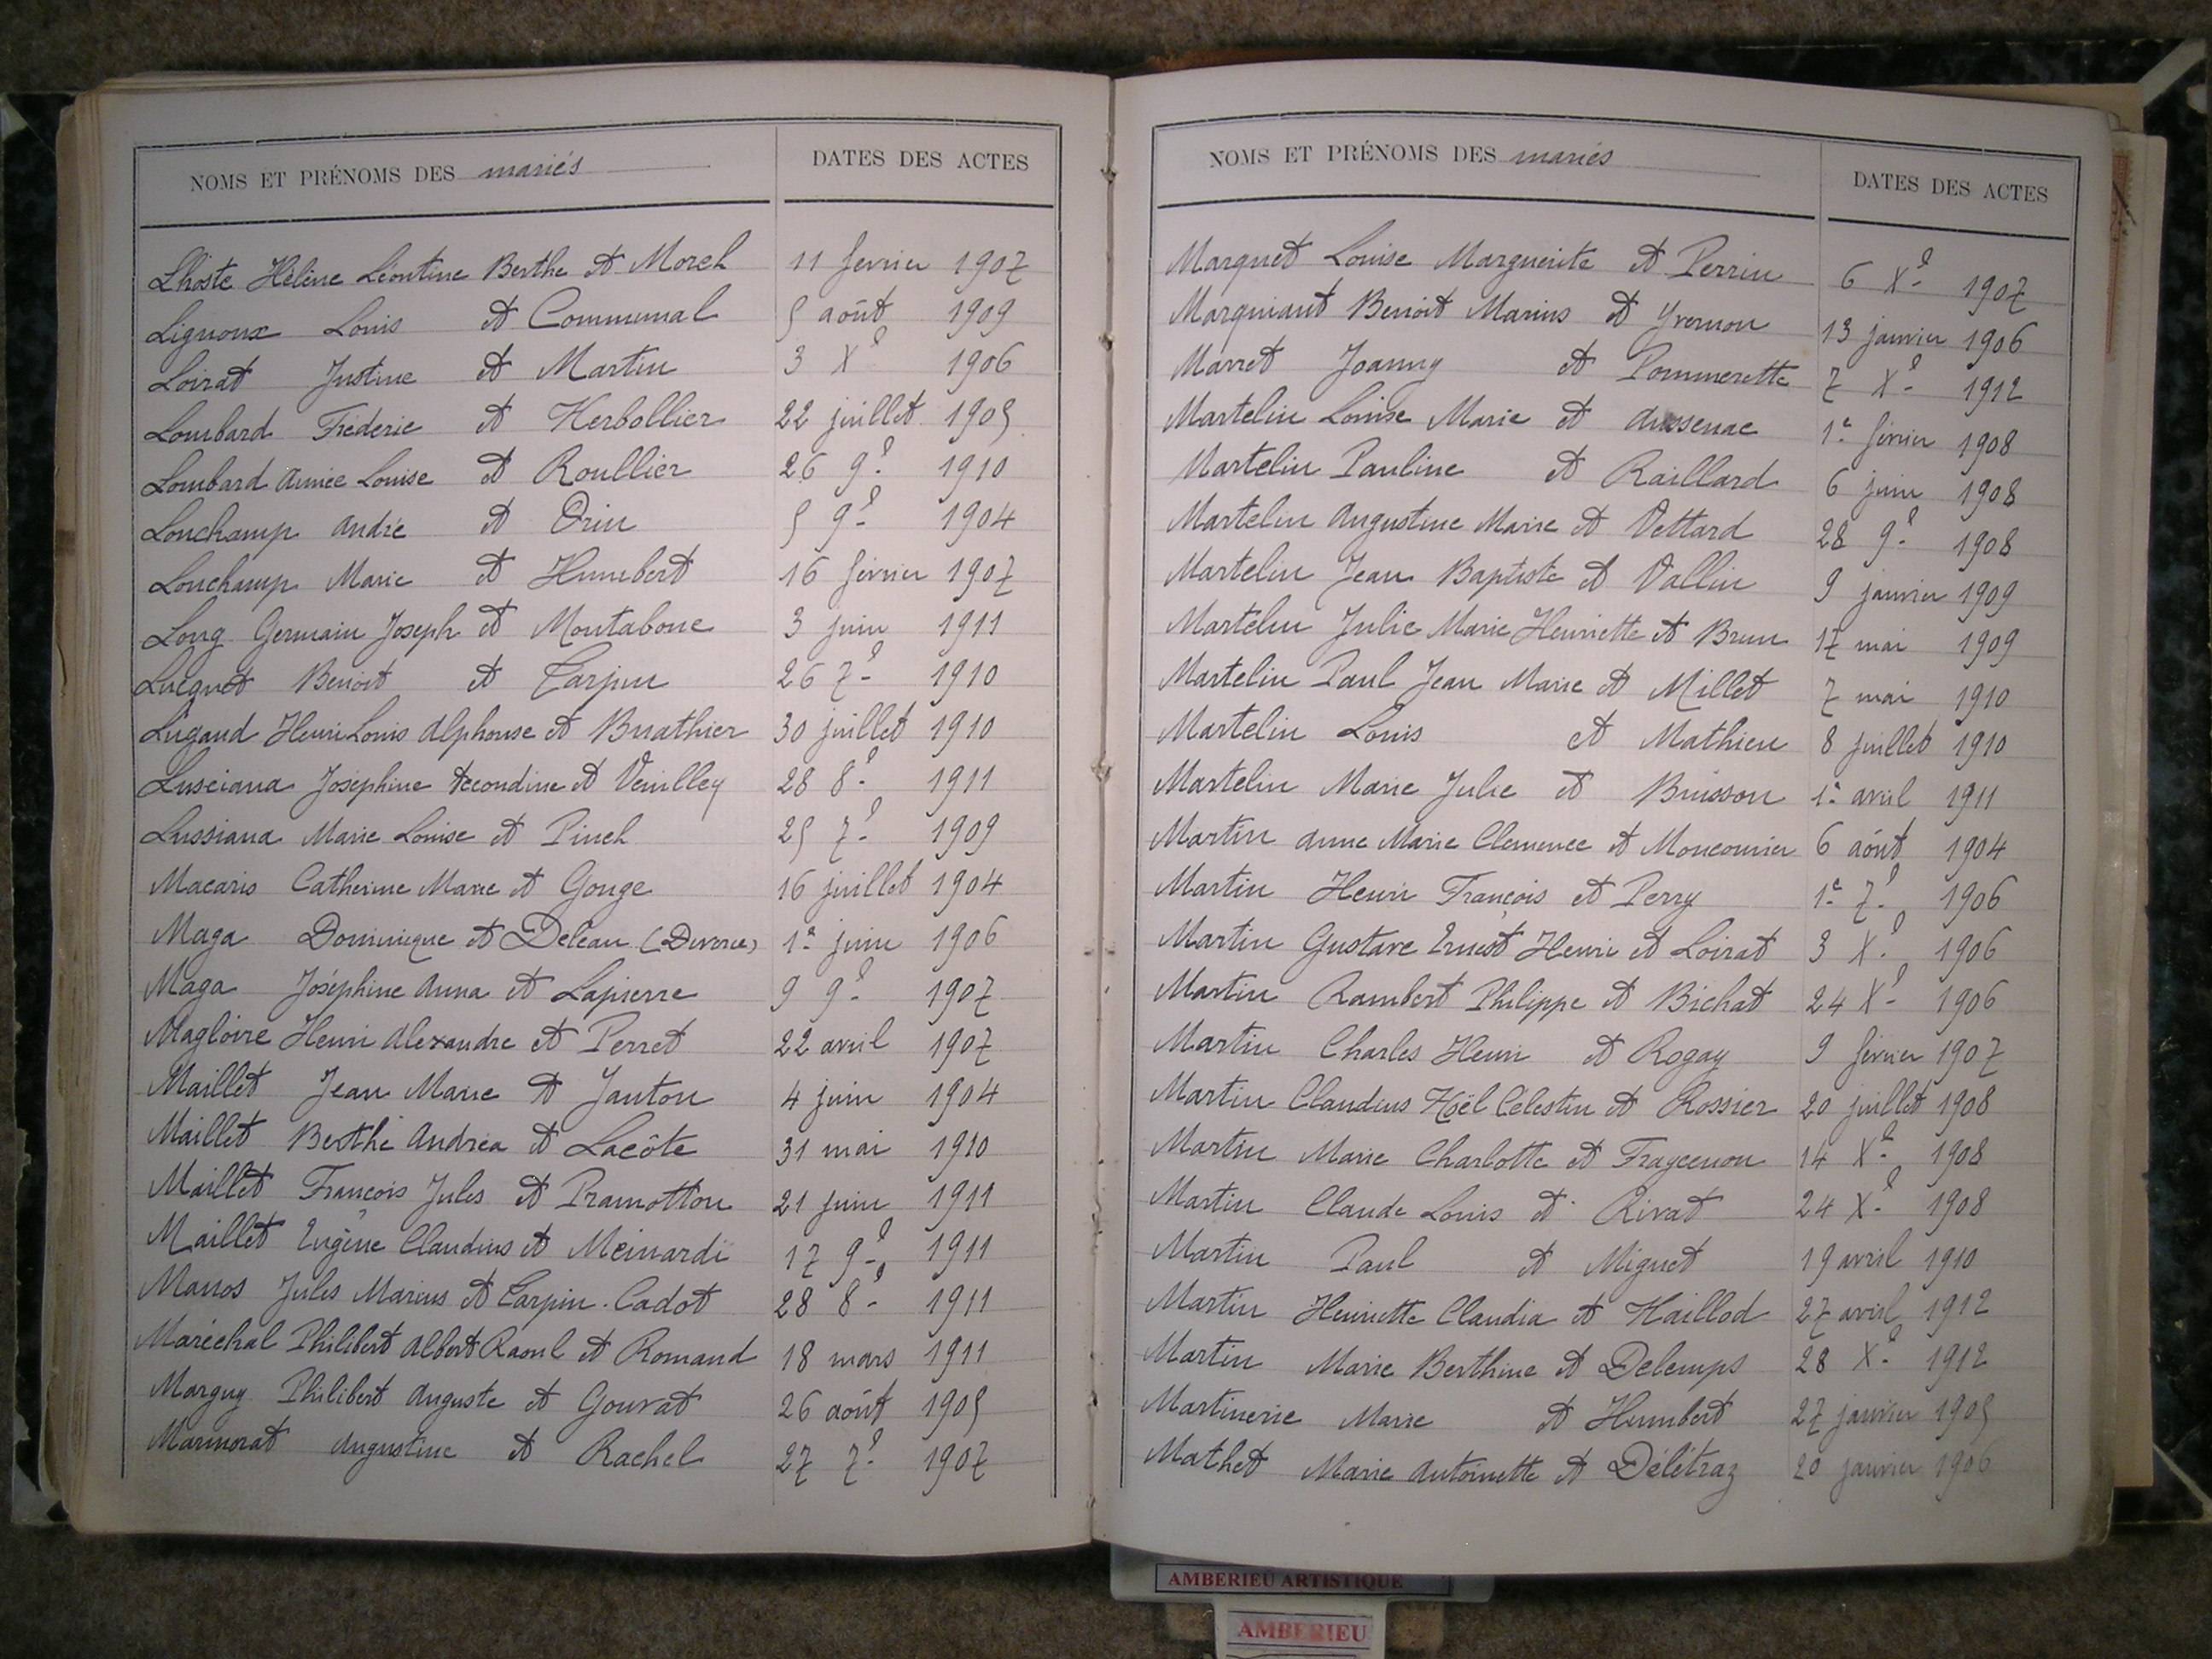 NOMS ET PRÉNOMS DES mariés DATES DES ACTES
Lhoste Hélène Léontine Berthe et Morel 11 février 1907
Lignoux Louis et Communal 5 août 1909
Loirat Justine et Martin 3 Xe 1906
Lombard Fréderic et Herbollier 22 juillet 1905
Lombard Aimée Louise et Roullier 26 9e 1910
Lonchamp André et Orin 5 9e 1904
Lonchamp Marie et Humbert 16 février 1907
Long Germain Joseph et Montabone 3 juin 1911
Lucquet Benoit et Carpin 26 7e 1910
Lugand Henri Louis Alphonse et Buathier 30 juillet 1910
Lusciana Joséphine Secondine et Venilley 28 8e 1911
Lussiana Marie Louise et Pinel 25 7e 1909
Macaris Catherine Marie et Gouge 16 juillet 1904
Maga Dominique et Deléan (Divorce) 1er juin 1906
Maga Joséphine Anna et Lapierre 9 9e 1907
Magloire Henri Alexandre et Perret 22 avril 1907
Maillet Jean Marie et Janton 4 juin 1904
Maillet Berthe Andréa et Lacôte 31 mai 1910
Maillet François Jules et Pramotton 21 juin 1911
Maillet Eugène Claudius et Meinardi 17 9e 1911
Manos Jules Marius et Carpin-Cadot 28 8e 1911
Maréchal Philibert Albert Raoul et Romand 18 mars 1911
Marguy Philibert Auguste et Gouvat 26 août 1905
Marmorat Augustine et Rachel 27 7e 1907
NOMS ET PRÉNOMS DES mariés DATES DES ACTES
Marquet Louise Marguerite et Perrin 6 Xe 1907
Marquiant Benoit Marius et Yvernon 13 janvier 1906
Marret Joanny et Pommerette 7 Xe 1912
Martelin Louise Marie et Aussenac 1er février 1908
Martelin Pauline et Raillard 6 juin 1908
Martelin Augustine Marie et Vettard 28 9e 1908
Martelin Jean Baptiste et Vallin 9 janvier 1909
Martelin Julie Marie Henriette et Brun 17 mai 1909
Martelin Paul Jean Marie et Millet 7 mai 1910
Martelin Louis et Mathieu 8 juillet 1910
Martelin Marie Julie et Buisson 1er avril 1911
Martin Anne Marie Clemence et Moncornier 6 août 1904
Martin Henri François et Perry 1er 7e 1906
Martin Gustave Ernest Henri et Loirat 3 Xe 1906
Martin Rambert Philippe et Bichat 24 Xe 1906
Martin Charles Henri et Rogay 9 février 1907
Martin Claudius Noël Célestin et Rossier 20 juillet 1908
Martin Marie Charlotte et Fraycenon 14 Xe 1908
Martin Claude Louis et Rivat 24 Xe 1908
Martin Paul et Miguet 19 avril 1910
Martin Henriette Claudia et Haillod 27 avril 1912
Martin Marie Berthine et Delemps 28 Xe 1912
Martinerie Marie et Humbert 27 janvier 1905
Mathet Marie Antoinette et Délétraz 20 janvier 1906
AMBERIEU ARTISTIQUE
AMBERIEU